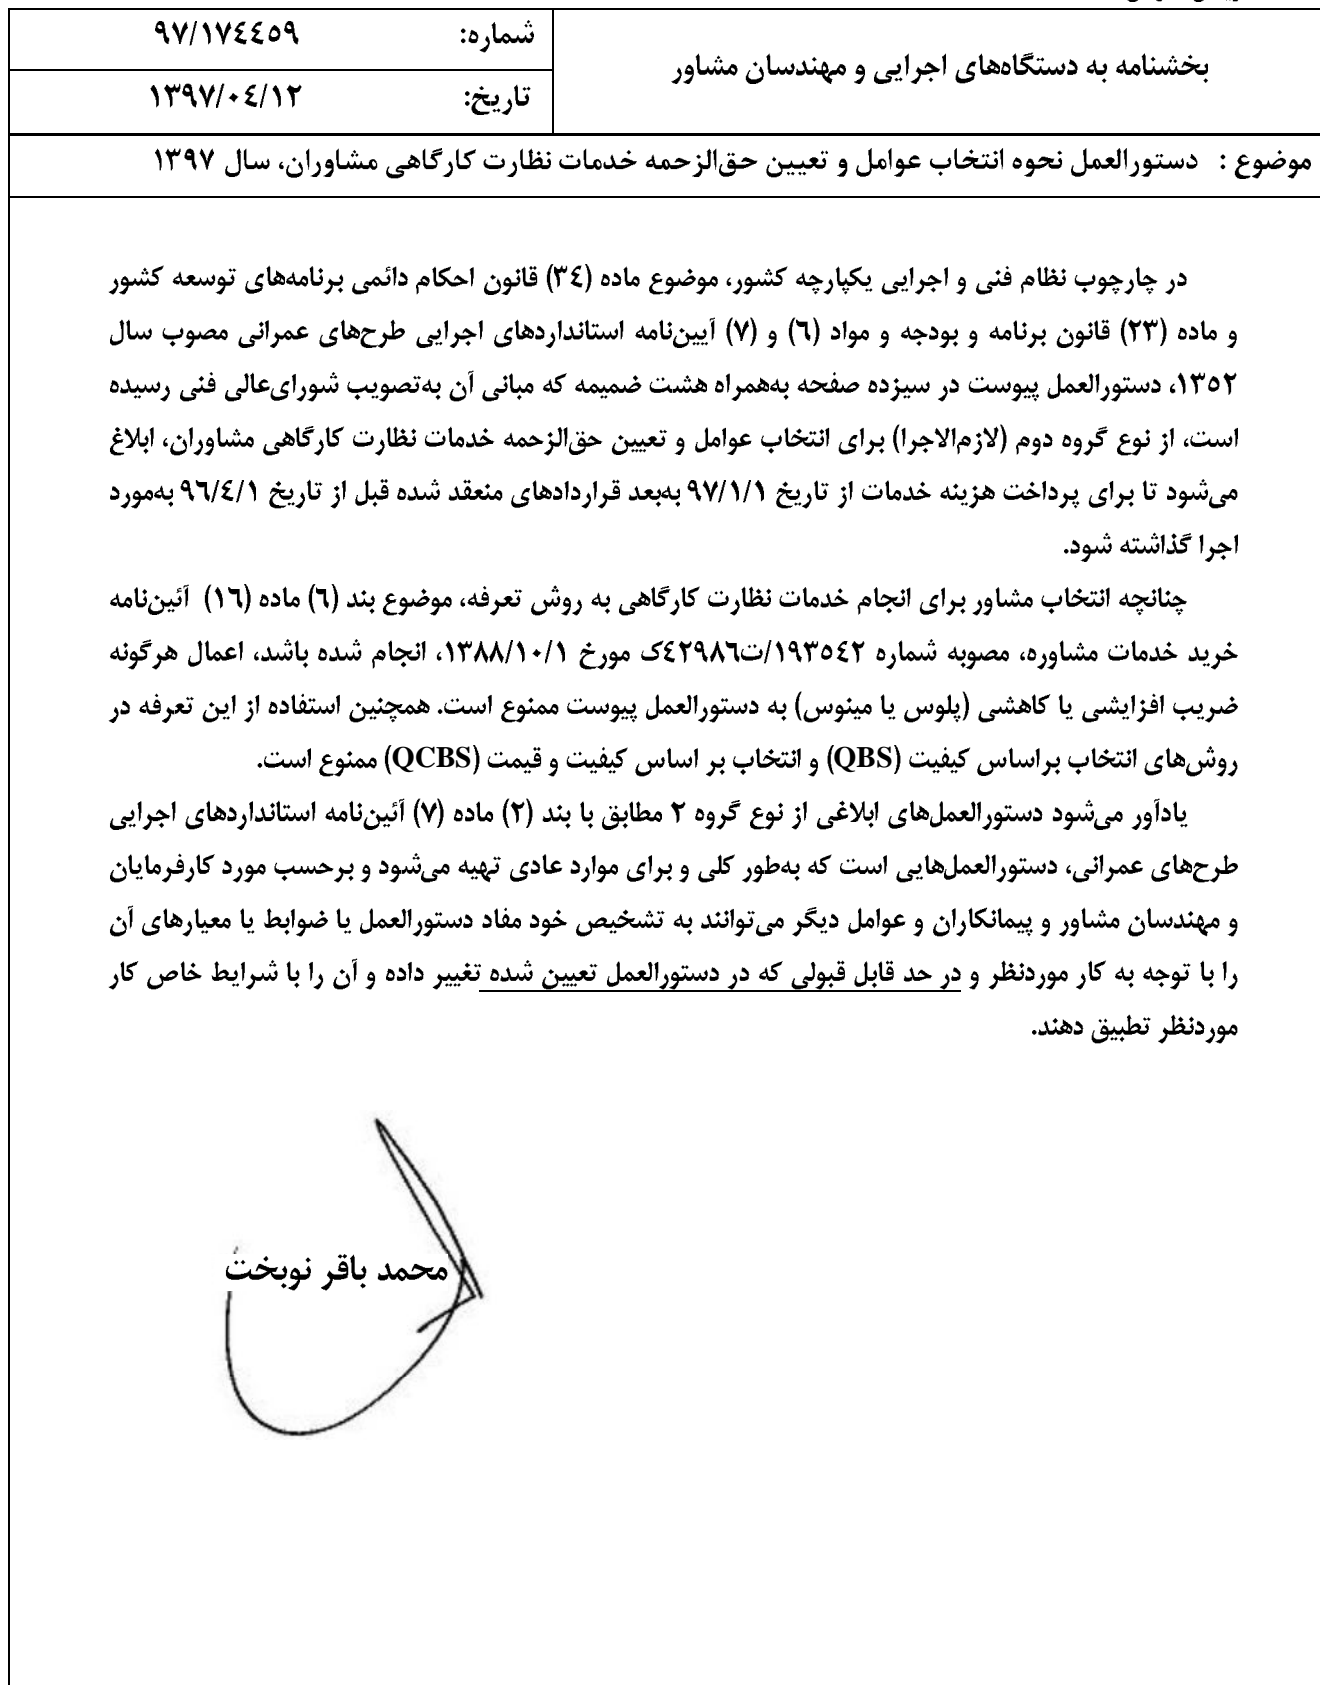 بخشنامه به دستگاه‌های اجرایی و مهندسان مشاور
شماره: ۹۷/۱۷٤٤٥۹
تاریخ: ۱۳۹۷/۰٤/۱۲
موضوع : دستورالعمل نحوه انتخاب عوامل و تعیین حق‌الزحمه خدمات نظارت کارگاهی مشاوران، سال ۱۳۹۷
در چارچوب نظام فنی و اجرایی یکپارچه کشور، موضوع ماده (۳٤) قانون احکام دائمی برنامه‌های توسعه کشور
و ماده (۲۳) قانون برنامه و بودجه و مواد (٦) و (۷) آیین‌نامه استانداردهای اجرایی طرح‌های عمرانی مصوب سال
۱۳٥۲، دستورالعمل پیوست در سیزده صفحه به‌همراه هشت ضمیمه که مبانی آن به‌تصویب شورای‌عالی فنی رسیده
است، از نوع گروه دوم (لازم‌الاجرا) برای انتخاب عوامل و تعیین حق‌الزحمه خدمات نظارت کارگاهی مشاوران، ابلاغ
می‌شود تا برای پرداخت هزینه خدمات از تاریخ ۹۷/۱/۱ به‌بعد قراردادهای منعقد شده قبل از تاریخ ۹٦/٤/۱ به‌مورد
اجرا گذاشته شود.
چنانچه انتخاب مشاور برای انجام خدمات نظارت کارگاهی به روش تعرفه، موضوع بند (٦) ماده (۱٦) آئین‌نامه
خرید خدمات مشاوره، مصوبه شماره ۱۹۳٥٤۲/ت٤۲۹۸٦ک مورخ ۱۳۸۸/۱۰/۱، انجام شده باشد، اعمال هرگونه
ضریب افزایشی یا کاهشی (پلوس یا مینوس) به دستورالعمل پیوست ممنوع است. همچنین استفاده از این تعرفه در
روش‌های انتخاب براساس کیفیت (QBS) و انتخاب بر اساس کیفیت و قیمت (QCBS) ممنوع است.
یادآور می‌شود دستورالعمل‌های ابلاغی از نوع گروه ۲ مطابق با بند (۲) ماده (۷) آئین‌نامه استانداردهای اجرایی
طرح‌های عمرانی، دستورالعمل‌هایی است که به‌طور کلی و برای موارد عادی تهیه می‌شود و برحسب مورد کارفرمایان
و مهندسان مشاور و پیمانکاران و عوامل دیگر می‌توانند به تشخیص خود مفاد دستورالعمل یا ضوابط یا معیارهای آن
را با توجه به کار موردنظر و در حد قابل قبولی که در دستورالعمل تعیین شده تغییر داده و آن را با شرایط خاص کار
موردنظر تطبیق دهند.
محمد باقر نوبخت